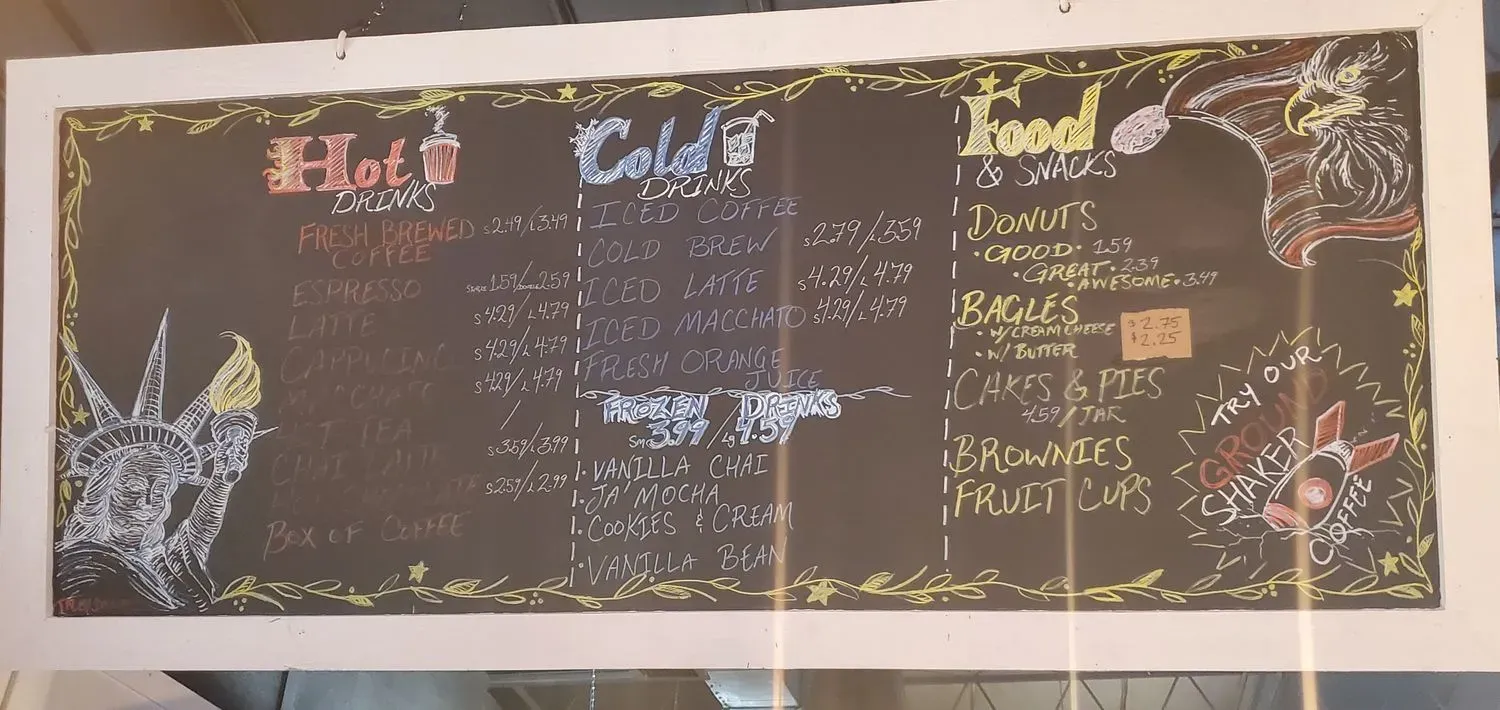 Hot
DRINKS
FRESH BREWED S 2.49/L 3.49
COFFEE
ESPRESSO SINGLE 1.59/DOUBLE 2.59
LATTE S 4.29/L 4.79
CAPPUCINO S 4.29/L 4.79
MACCHATO S 4.29/L 4.79
HOT TEA /
CHAI LATTE S 3.59/L 3.99
HOT CHOCOLATE S 2.59/L 2.99
BOX OF COFFEE
Cold
DRINKS
ICED COFFEE
COLD BREW S 2.79/L 3.59
ICED LATTE S 4.29/L 4.79
ICED MACCHATO S 4.29/L 4.79
FRESH ORANGE
JUICE
FROZEN DRINKS
Sm 3.99 / Lg 4.59
• VANILLA CHAI
• JA'MOCHA
• COOKIES & CREAM
• VANILLA BEAN
Food
& SNACKS
DONUTS
• GOOD • 1.59
• GREAT • 2.39
• AWESOME • 3.49
BAGLES
• W/CREAM CHEESE $2.75
• W/ BUTTER $2.25
CAKES & PIES
4.59/JAR
BROWNIES
FRUIT CUPS
TRY OUR
GROUND
SHAKER
COFFEE